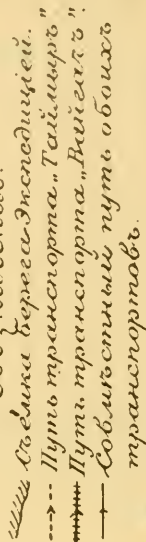 Съёмка берега экспедицiей.
Путь транспорта „Таймыръ"
Путь транспорта „Вайгачъ".
Совмѣстный путь обоихъ
транспортовъ.